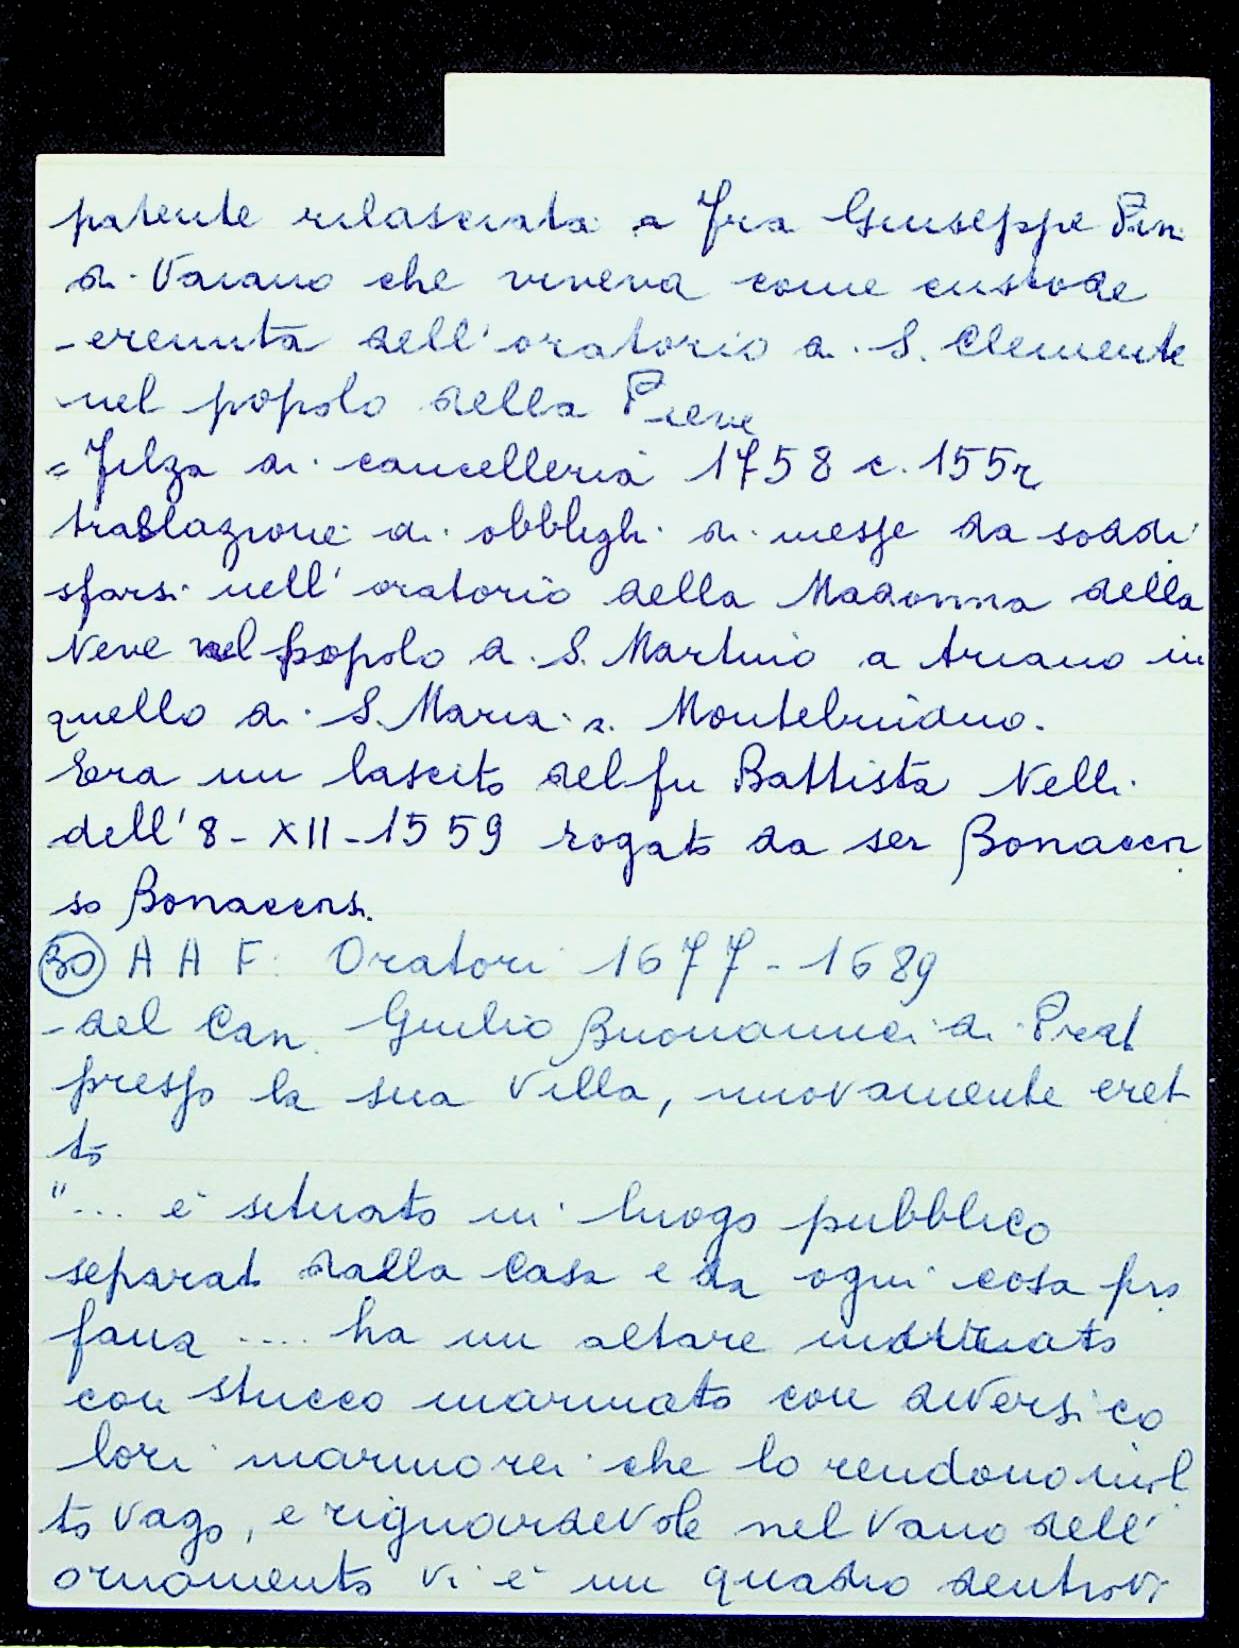 patente rilasciata a Fra Giuseppe Pin
di Vaiano che viveva come custode
-eremita dell'oratorio di S. Clemente
nel popolo della Pieve
= Filza di cancelleria 1758 c. 155r
traslazione di obblighi di messe da soddi
sfarsi nell'oratorio della Madonna della
Neve nel popolo di S. Martino a in
quello di S. Maria a
Era un lascito del fu Battista Nelli
dell'8-XII-1559 rogato da ser Bonaccor
so Bonaccorsi.
30 A A F. Oratori 1677-1689
- del Can. Giulio Buonamici di Prat
presso la sua Villa, nuovamente eret
to
"... è situato in luogo pubblico
separat dalla Casa e da ogni cosa pro
fana .... ha un altare
con stucco marmato con diversi co
lori marmorei che lo rendono mol
to vago, e riguardevole nel Vano dell'
ornamento Vi è un quadro dentrovi